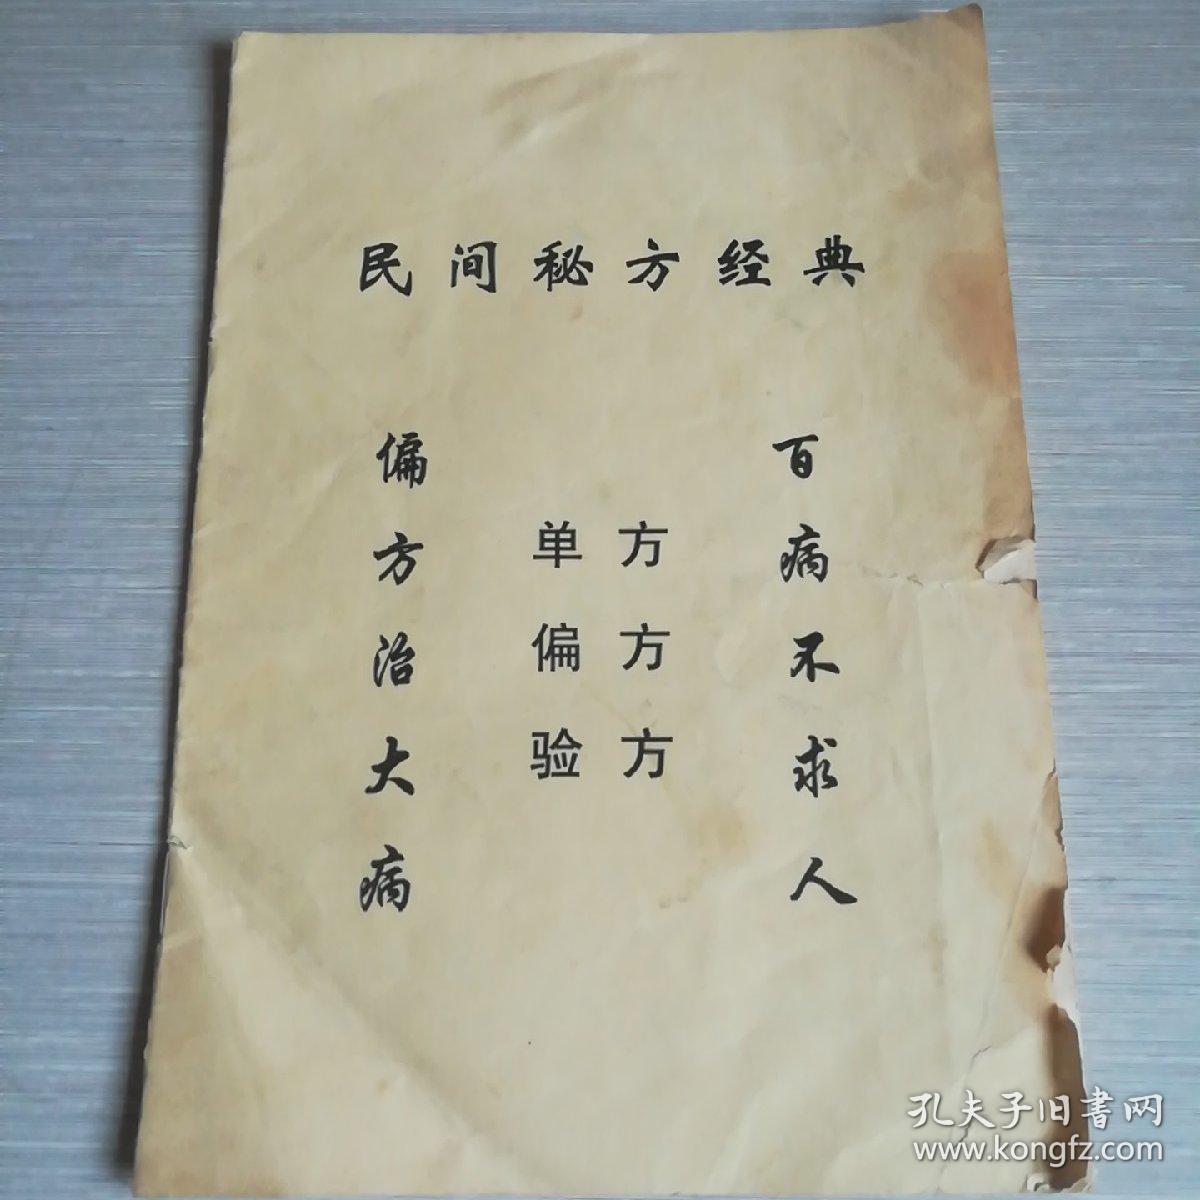 民间秘方经典
偏方治大病
单方
偏方
验方
百病不求人
孔夫子旧书网
www.kongfz.com